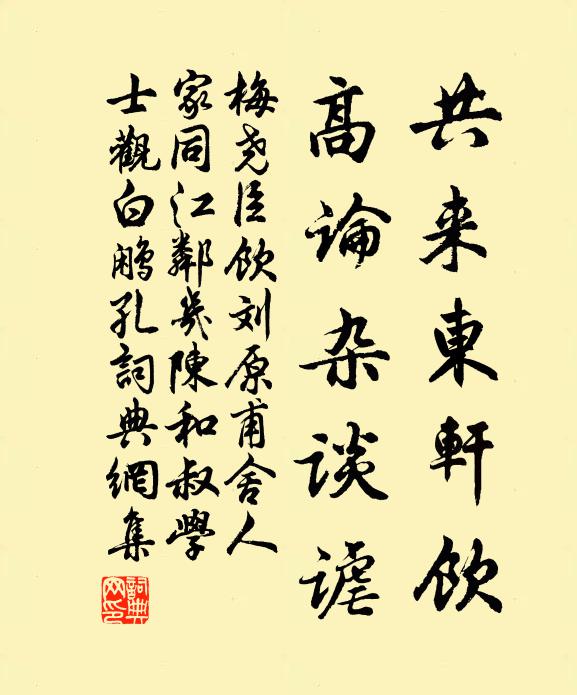 共来東軒飲
高論杂谈謔
梅尧臣飲刘原甫舍人
家同江鄰幾陳和叔學
士觀白鷴孔詞典網集
詞典
网印